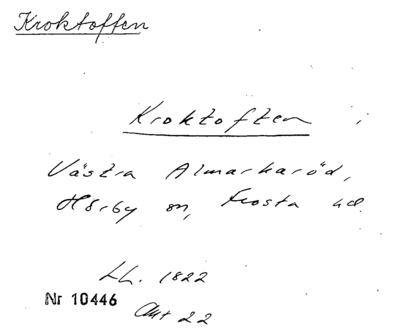 Kroktoffen
Kroktoften
Västra Almarkaröd,
Hörby sn, Frosta hd.
Lh. 1822
Nr 10446
Akt 22